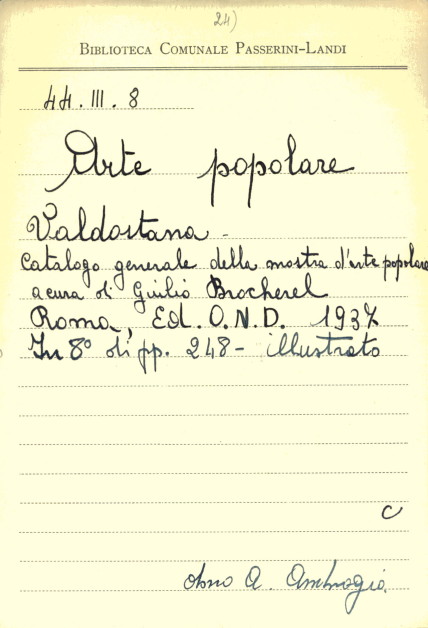 24)
BIBLIOTECA COMUNALE PASSERINI-LANDI
44.III.8
Arte popolare
Valdostana -
Catalogo generale della mostra d'arte popolare
a cura di Giulio Brocherel
Roma, Ed. O.N.D. 1937
In 8° di pp. 248 - illustrato
C
dono A. Ambrogio